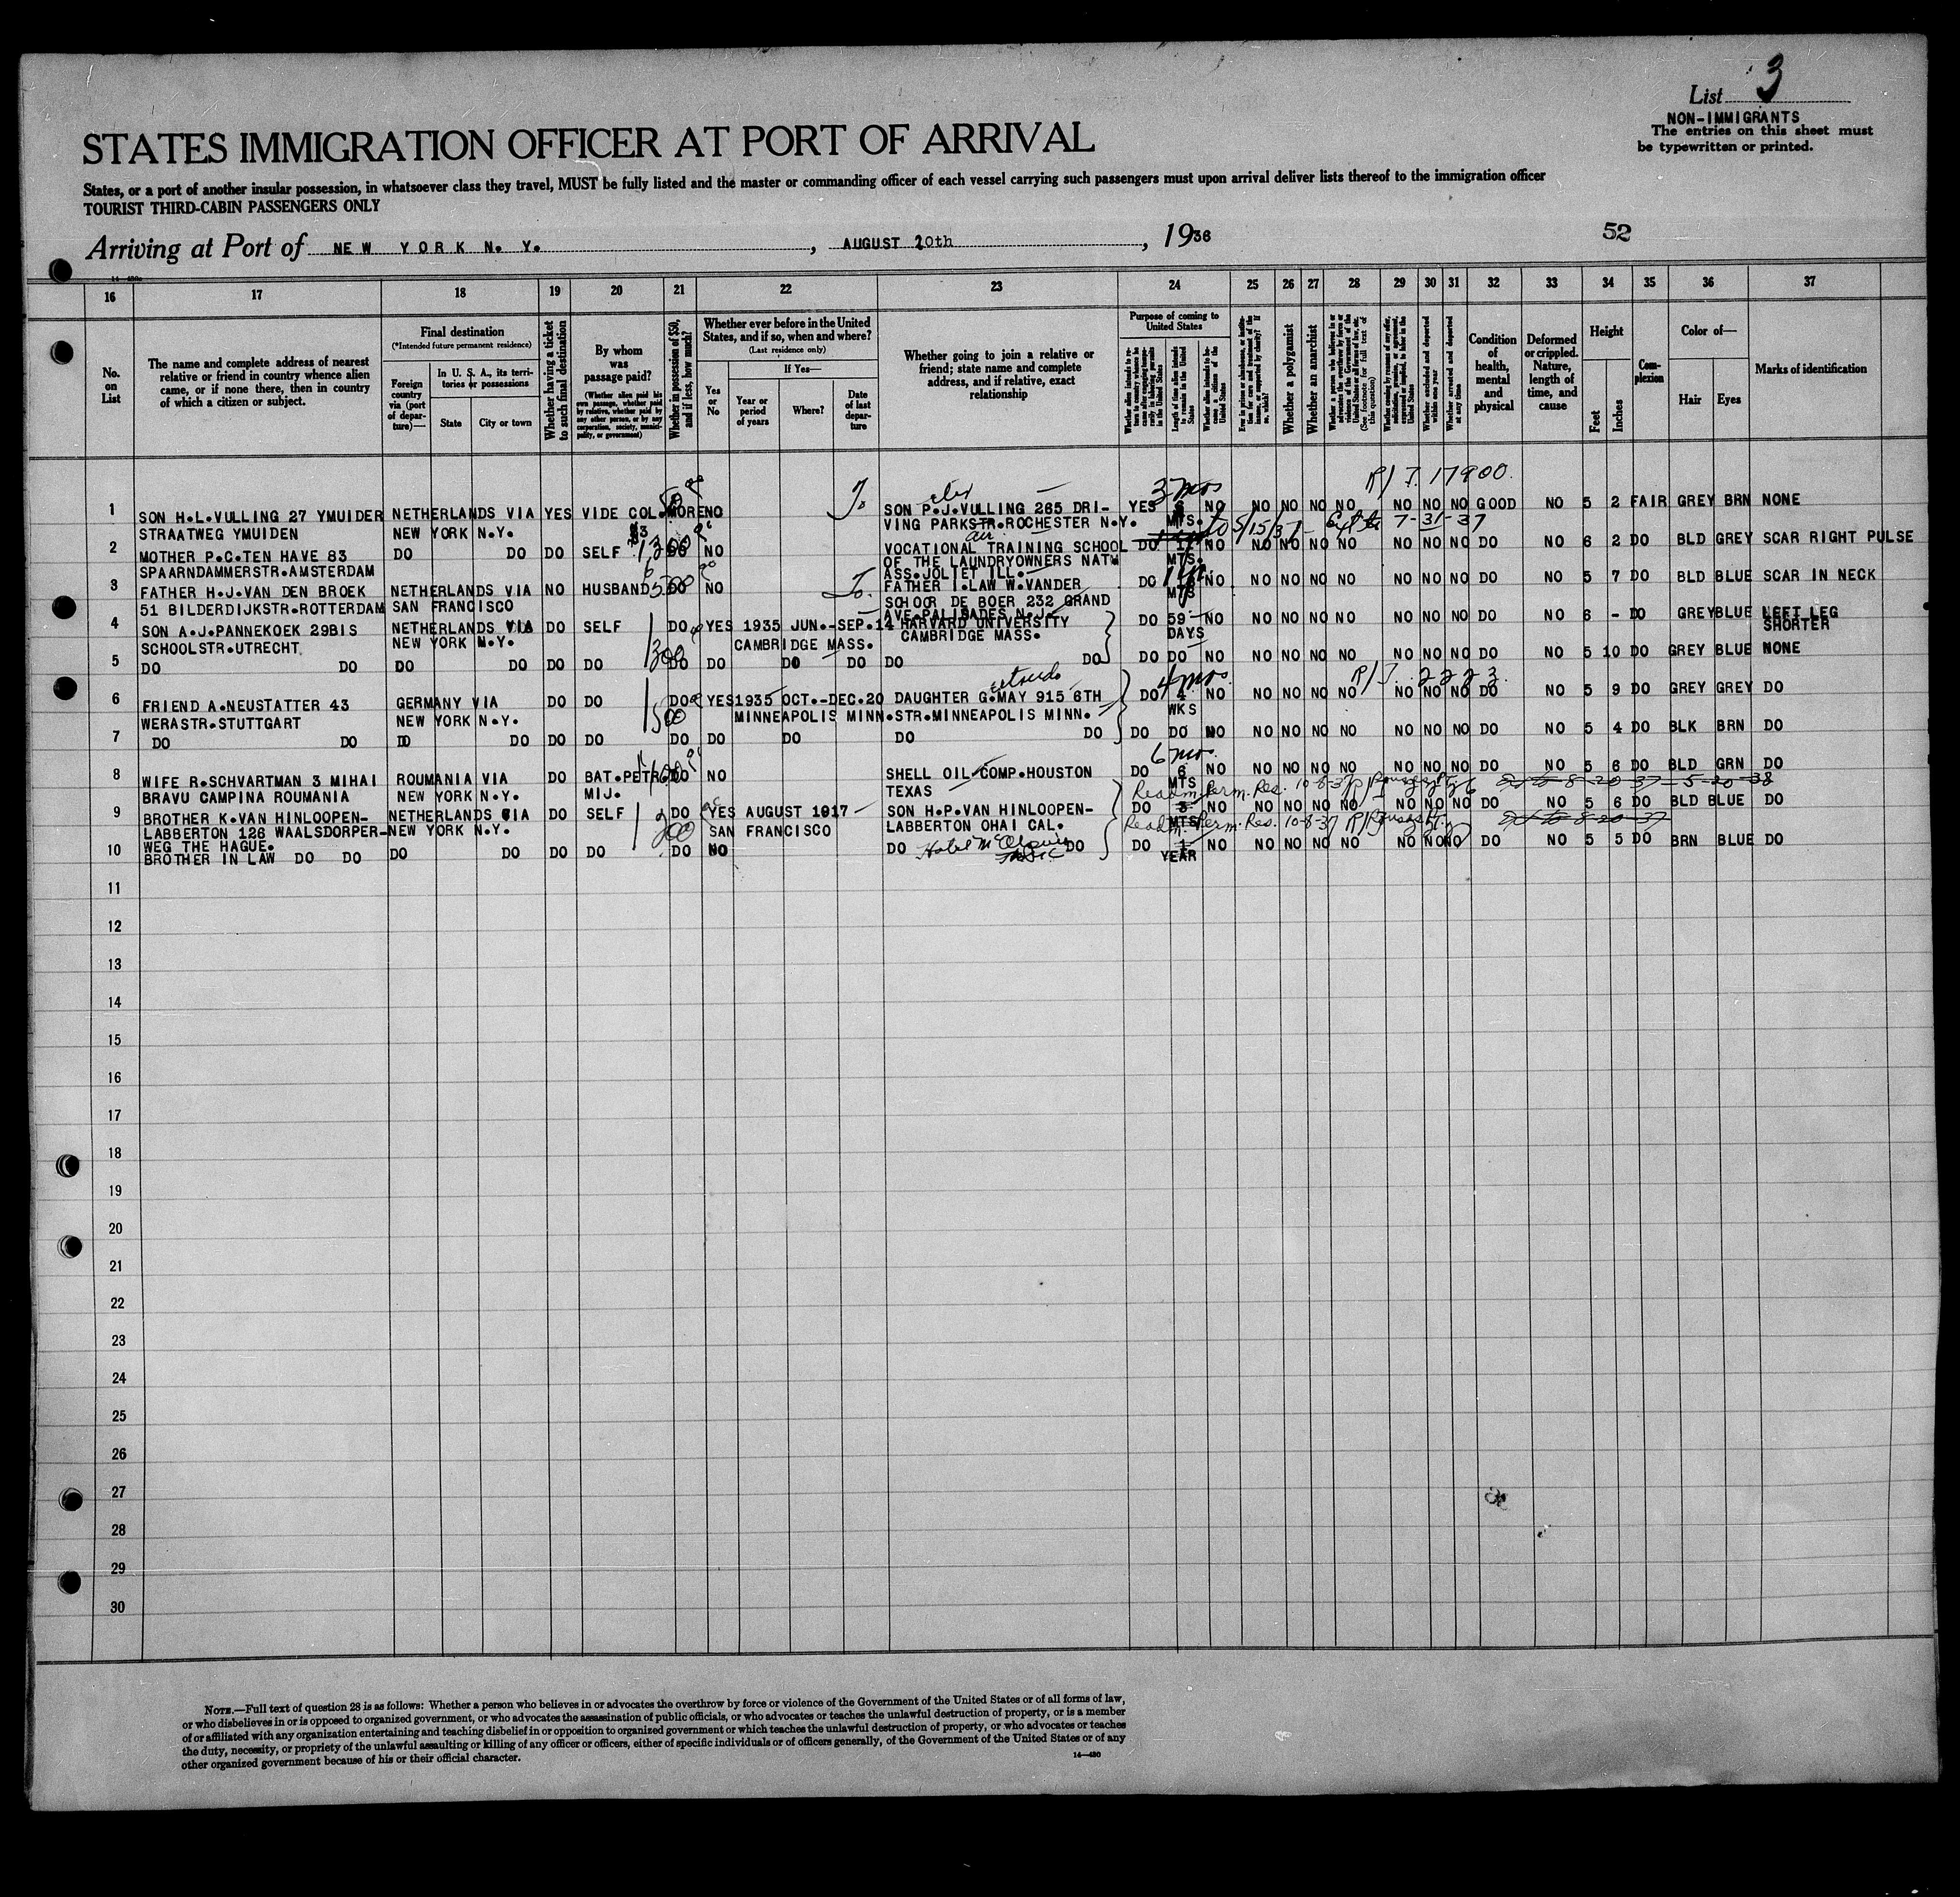 List 3
NON-IMMIGRANTS
The entries on this sheet must
be typewritten or printed.
STATES IMMIGRATION OFFICER AT PORT OF ARRIVAL
States, or a port of another insular possession, in whatsoever class they travel, MUST be fully listed and the master or commanding officer of each vessel carrying such passengers must upon arrival deliver lists thereof to the immigration officer
TOURIST THIRD-CABIN PASSENGERS ONLY
Arriving at Port of NEW YORK N. Y. , AUGUST 20th , 1936
52
16 17 18 19 20 21 22 23 24 25 26 27 28 29 30 31 32 33 34 35 36 37
No. on List
The name and complete address of nearest relative or friend in country whence alien came, or if none there, then in country of which a citizen or subject.
Final destination
(*Intended future permanent residence)
Foreign country via (port of departure)—
In U. S. A., its territories or possessions
State
City or town
Whether having a ticket to such final destination
By whom was passage paid?
(Whether alien paid his own passage, whether paid by relative, whether paid by any other person, or by any corporation, society, municipality, or government)
Whether in possession of $50, and if less, how much?
Whether ever before in the United States, and if so, when and where?
(Last residence only)
Yes or No
If Yes—
Year or period of years
Where?
Date of last departure
Whether going to join a relative or friend; state name and complete address, and if relative, exact relationship
Purpose of coming to United States
Length of time alien intends to remain in the United States
Whether alien intends to become a citizen of the United States
Whether a polygamist
Whether an anarchist
Whether excluded and deported within one year
Whether arrested and deported at any time
Condition of health, mental and physical
Deformed or crippled. Nature, length of time, and cause
Height
Feet
Inches
Complexion
Color of—
Hair
Eyes
Marks of identification
R/J. 17900
3 mos
1 SON H.L.VULLING 27 YMUIDER NETHERLANDS VIA YES VIDE COL. MORE NO To SON P.J.VULLING 265 DRI- YES 6 NO NO NO NO NO NO NO NO GOOD NO 5 2 FAIR GREY BRN NONE
STRAATWEG YMUIDEN NEW YORK N.Y. $3 VING PARKSTR.ROCHESTER N.Y. MTS. to 5/15/37 7-31-37
2 MOTHER P.C.TEN HAVE 83 DO DO DO SELF NO VOCATIONAL TRAINING SCHOOL DO NO NO NO NO NO NO NO NO DO NO 6 2 DO BLD GREY SCAR RIGHT PULSE
SPAARNDAMMERSTR.AMSTERDAM OF THE LAUNDRYOWNERS NATW MTS.
ASS.JOLIET ILL.
3 FATHER H.J.VAN DEN BROEK NETHERLANDS VIA NO HUSBAND DO NO To FATHER I.LAW W.VANDER DO NO NO NO NO NO NO NO NO DO NO 5 7 DO BLD BLUE SCAR IN NECK
51 BILDERDIJKSTR.ROTTERDAM SAN FRANCISCO SCHOOR DE BOER 232 GRAND MTS
AVE.PALISADES N.J.
4 SON A.J.PANNEKOEK 29BIS NETHERLANDS VIA DO SELF DO YES 1935 JUN.-SEP.14 HARVARD UNIVERSITY DO 59 NO NO NO NO NO NO NO NO DO NO 6 - DO GREY BLUE LEFT LEG
SHORTER
SCHOOLSTR.UTRECHT NEW YORK N.Y. CAMBRIDGE MASS. CAMBRIDGE MASS. DAYS
5 DO DO DO DO DO DO 300 DO DO DO DO DO DO DO DO NO NO NO NO NO NO NO NO DO NO 5 10 DO GREY BLUE NONE
4 mos. R/J. 2223.
6 FRIEND A.NEUSTATTER 43 GERMANY VIA DO DO DO YES 1935 OCT.-DEC.20 DAUGHTER G.MAY 915 6TH DO 4 NO NO NO NO NO NO NO NO DO NO 5 9 DO GREY GREY DO
WERASTR.STUTTGART NEW YORK N.Y. 1500 MINNEAPOLIS MINN. STR.MINNEAPOLIS MINN. WKS
7 DO DO DO DO DO DO DO DO DO DO DO DO DO NO NO NO NO NO NO NO NO DO NO 5 4 DO BLK BRN DO
6 mos.
8 WIFE R.SCHVARTMAN 3 MIHAI ROUMANIA VIA DO BAT.PETR. DO NO SHELL OIL COMP.HOUSTON DO 6 NO NO NO NO NO NO NO NO DO NO 5 6 DO BLD GRN DO
BRAVU CAMPINA ROUMANIA NEW YORK N.Y. MIJ. TEXAS MTS
Readm. Perm. Res. 10-8-37 8-20-37 5-20-38
9 BROTHER K.VAN HINLOOPEN- NETHERLANDS VIA DO SELF DO YES AUGUST 1917 SON H.P.VAN HINLOOPEN- DO 3 NO NO NO NO NO NO NO NO DO NO 5 6 DO BLD BLUE DO
LABBERTON 126 WAALSDORPER- NEW YORK N.Y. SAN FRANCISCO LABBERTON OHAI CAL. MTS
WEG THE HAGUE.
Readm. Perm. Res. 10-8-37 8-20-37
10 BROTHER IN LAW DO DO DO DO DO DO DO NO DO Hotel McAlpin DO DO 1 NO NO NO NO NO NO NO NO DO NO 5 5 DO BRN BLUE DO
YEAR
11
12
13
14
15
16
17
18
19
20
21
22
23
24
25
26
27
28
29
30
NOTE.—Full text of question 28 is as follows: Whether a person who believes in or advocates the overthrow by force or violence of the Government of the United States or of all forms of law,
or who disbelieves in or is opposed to organized government, or who advocates the assassination of public officials, or who advocates or teaches the unlawful destruction of property, or is a member
of or affiliated with any organization entertaining and teaching disbelief in or opposition to organized government or which teaches the unlawful destruction of property, or who advocates or teaches
the duty, necessity, or propriety of the unlawful assaulting or killing of any officer or officers, either of specific individuals or of officers generally, of the Government of the United States or of any
other organized government because of his or their official character.
14—430